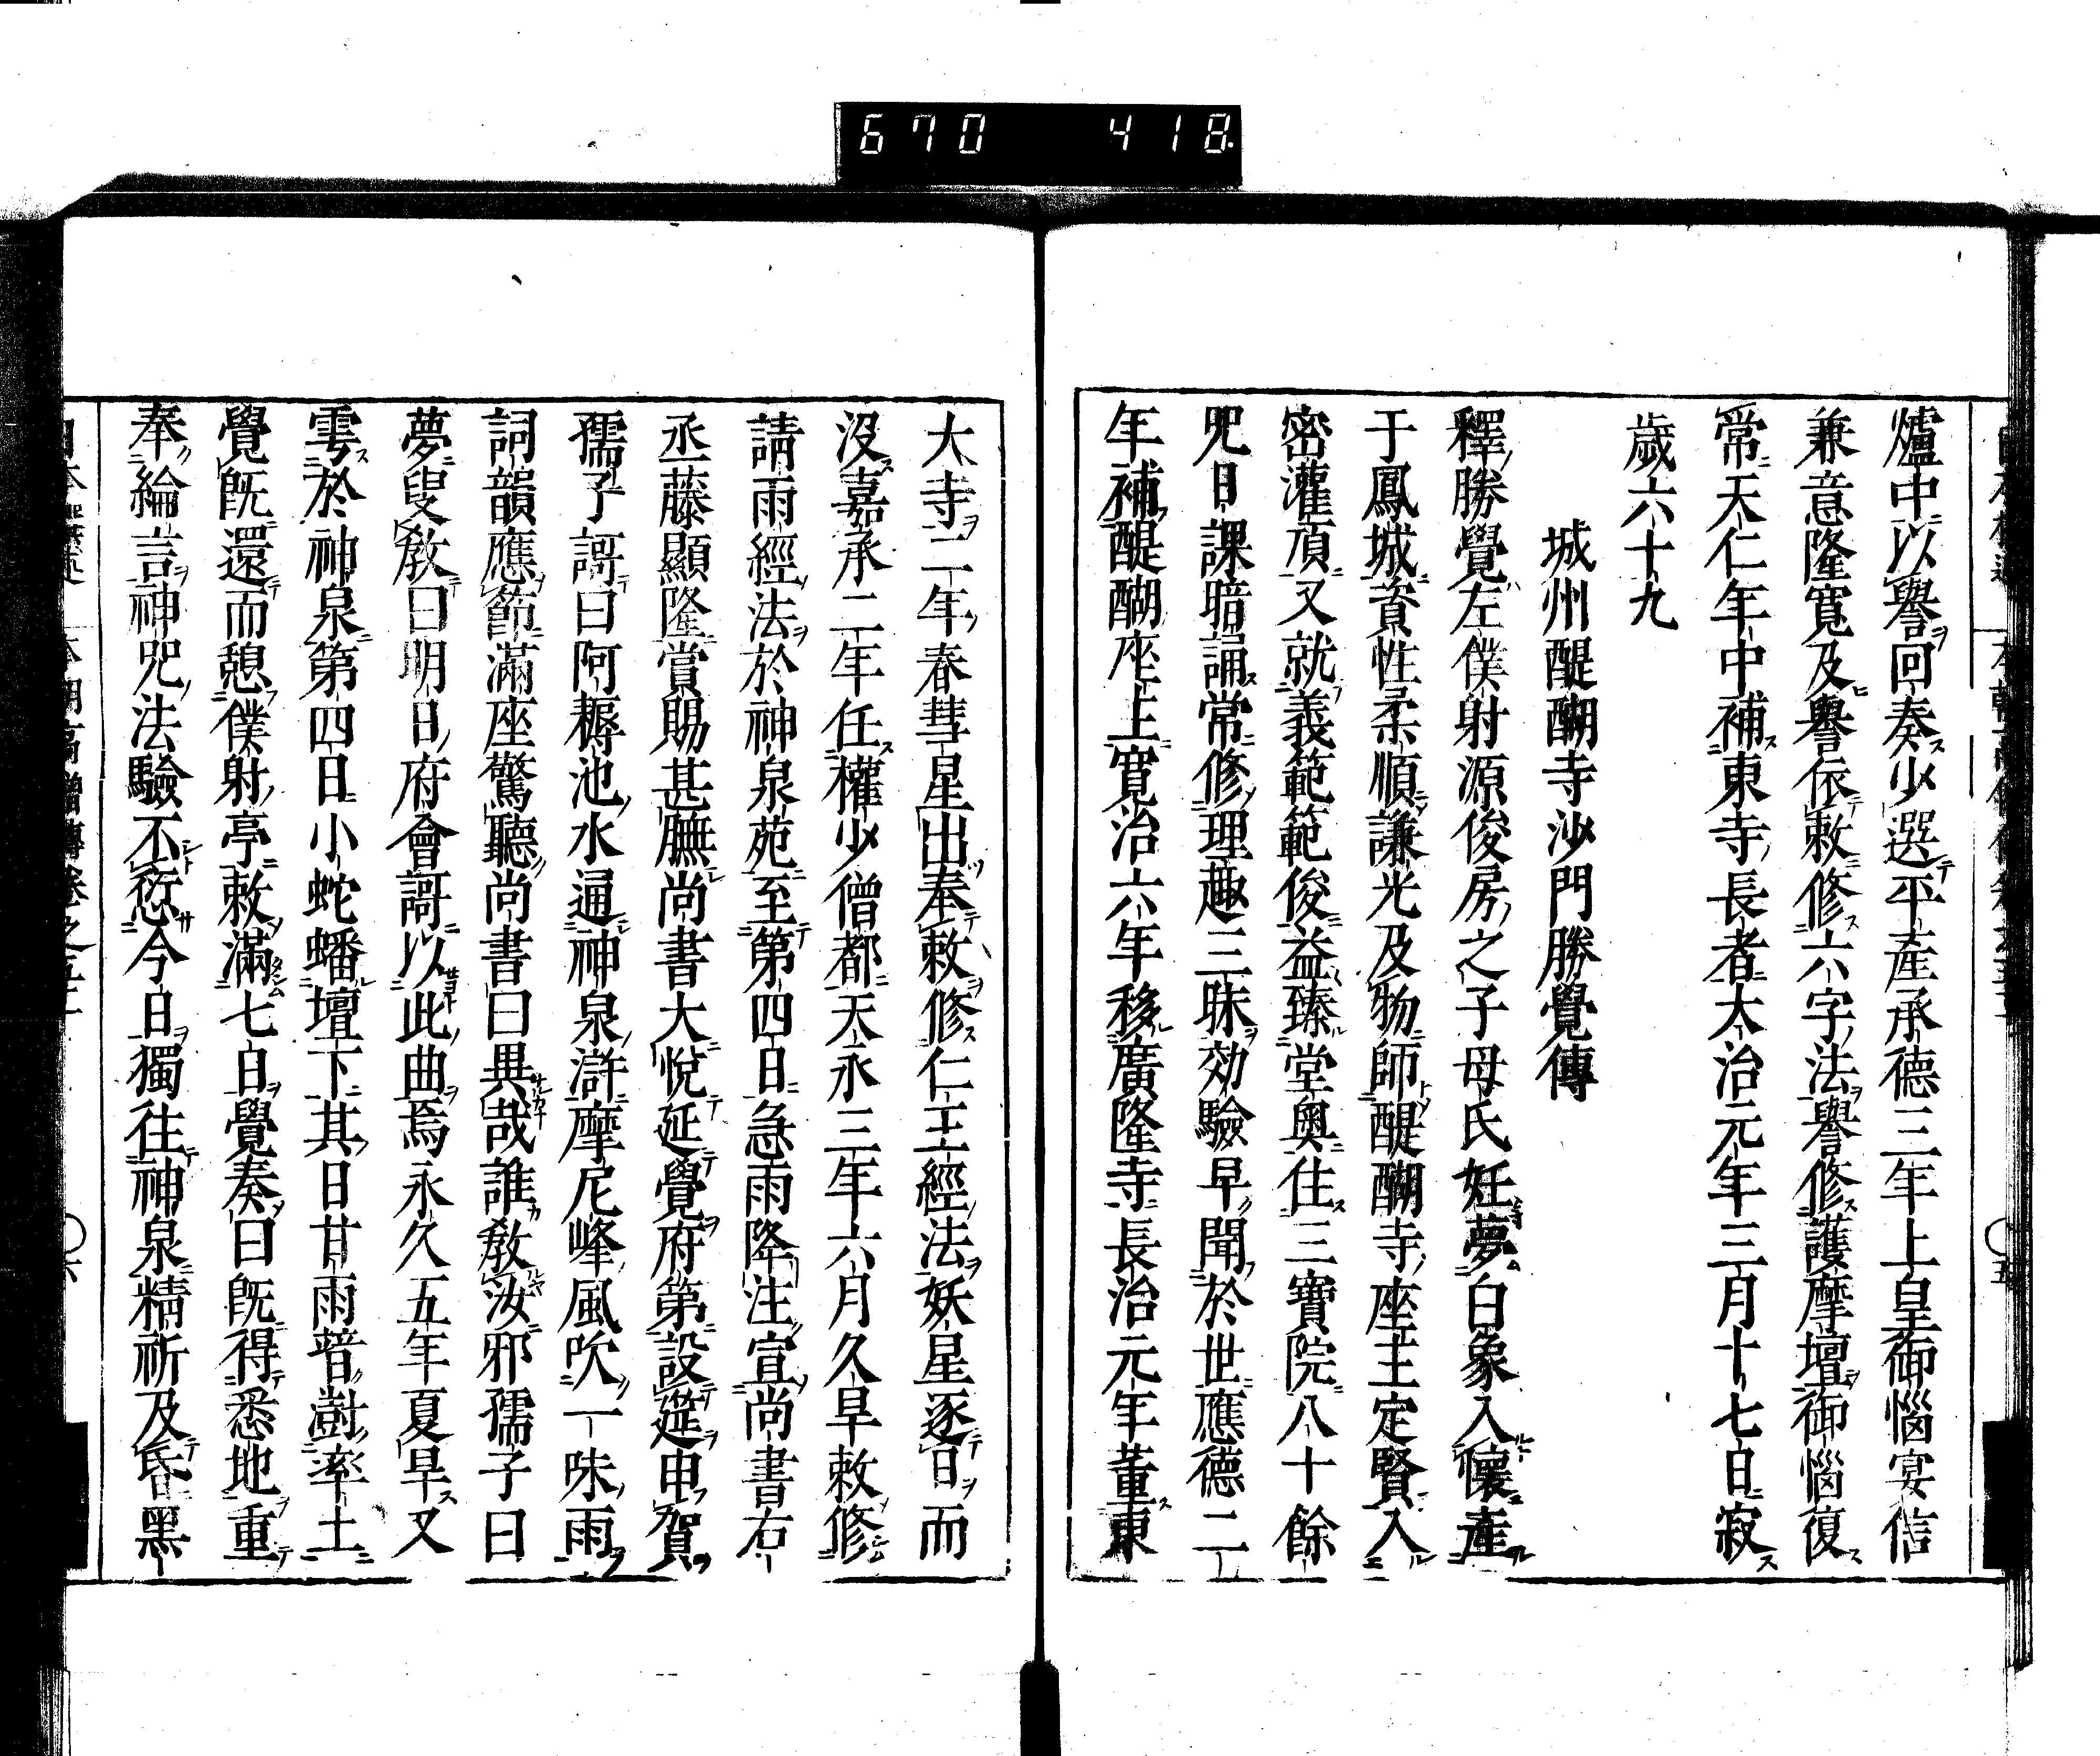 670 418
爐中以譽回奏少選平產承德三年上皇御惱宴信
兼意隆寬及譽依敕修六字法譽修護摩壇御惱復
常天仁年中補東寺長者大治元年三月十七日寂
歲六十九
城州醍醐寺沙門勝覺傳
釋勝覺左僕射源俊房之子母氏妊夢白象入懷產
于鳳城資性柔順謙光及物師醍醐寺座主定賢入
密灌頂又就義範範俊益臻堂奧住三寶院八十餘
咒日課暗誦常修理趣三昧効驗早聞於世應德二
年補醍醐座主寬治六年移廣隆寺長治元年董東
大寺二年春彗星出奉敕修仁王經法妖星逐日而
沒嘉承二年任權少僧都天永三年六月久旱敕修
請雨經法於神泉苑至第四日急雨降注宣尚書右
丞藤顯隆賞賜甚膴尚書大悅延覺府第設筵申賀
孺子謌曰阿耨池水通神泉滸摩尼峰風吹一味雨
詞韻應節滿座驚聽尚書曰異哉誰教汝邪孺子曰
夢叟教曰明日府會謌以此曲焉永久五年夏旱又
雩於神泉第四日小蛇蟠壇下其日甘雨普澍率土
覺既還而憩僕射亭敕滿七日覺奏曰既得悉地重
奉綸言神咒法驗不愆今日獨往神泉精祈及昏黑